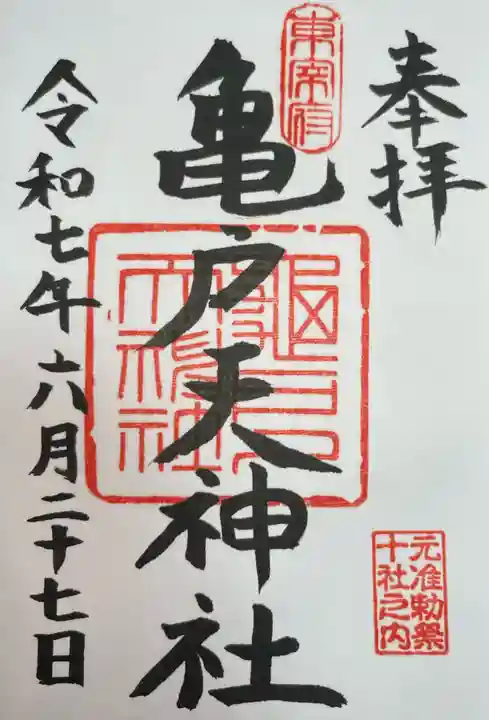 奉拝
東宰府
亀戸天神社
元准勅祭
十社之内
令和七年六月二十七日